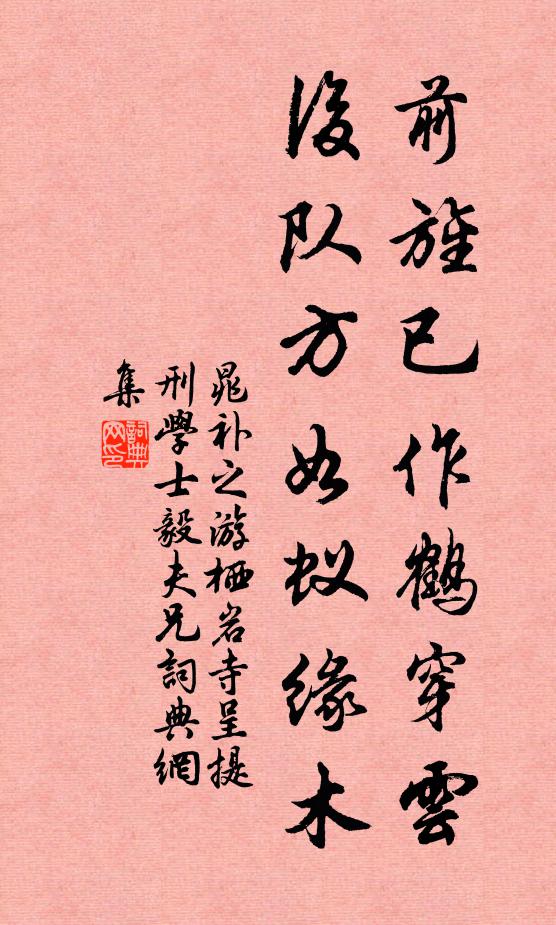 前旌已作鶴穿雲
後队方如蚁缘木
晁补之游栖岩寺呈提
刑學士毅夫兄詞典網
集
詞典
网印